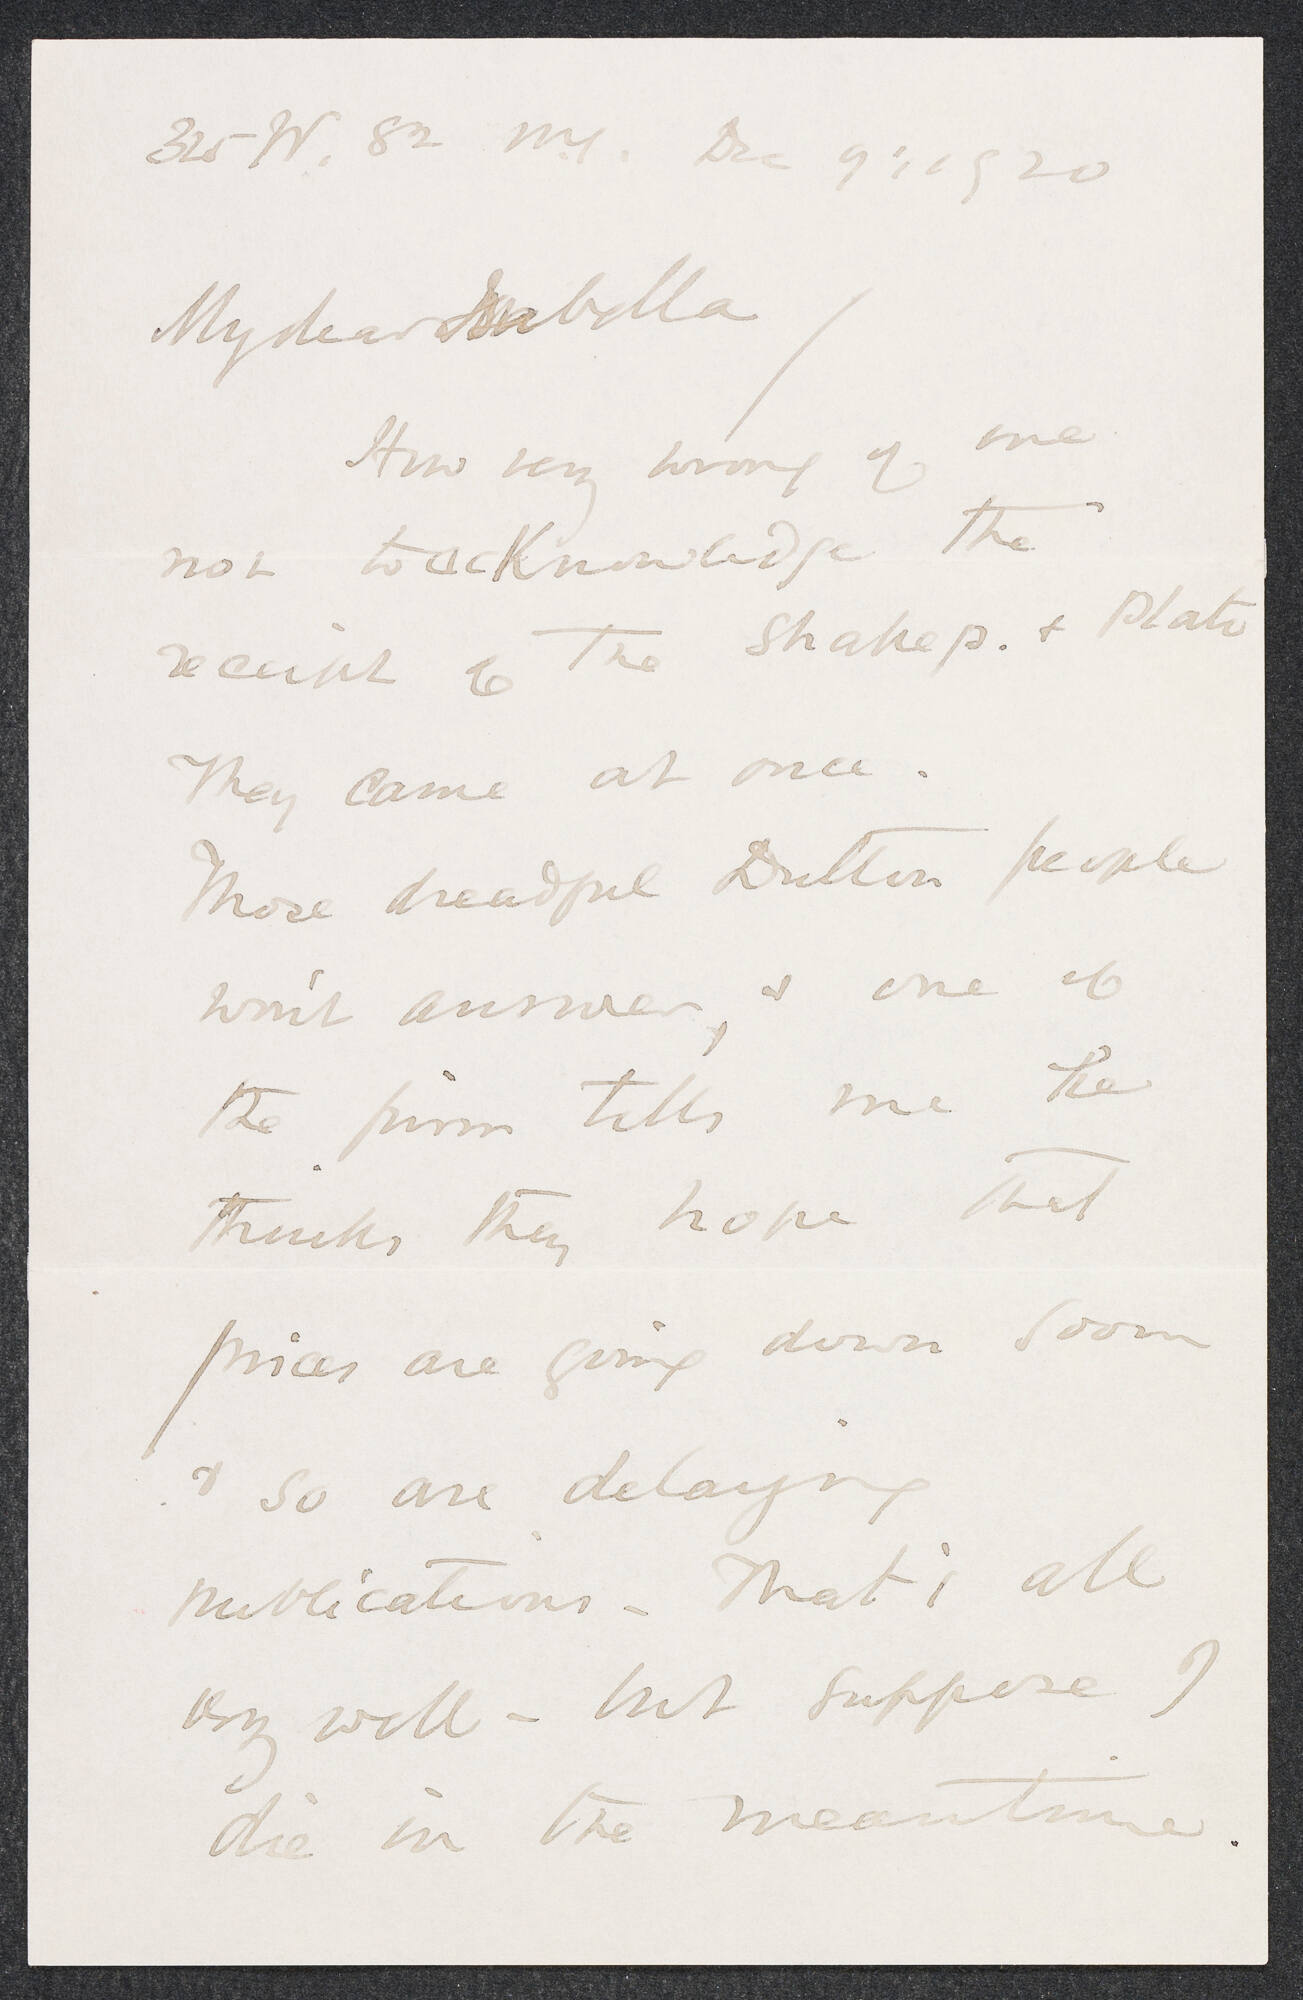 325 W. 82 N.Y. Dec 9: 1920
My dear Isabella /
How very wrong of me
not to acknowledge the
receipt of the Shakesp. & Plato
They came at once.
Those dreadful Dutton people
won't answer, & one of
the firm tells me he
thinks they hope that
prices are going down soon
& so are delaying
publications - That's all
very well - but suppose I
die in the meantime.